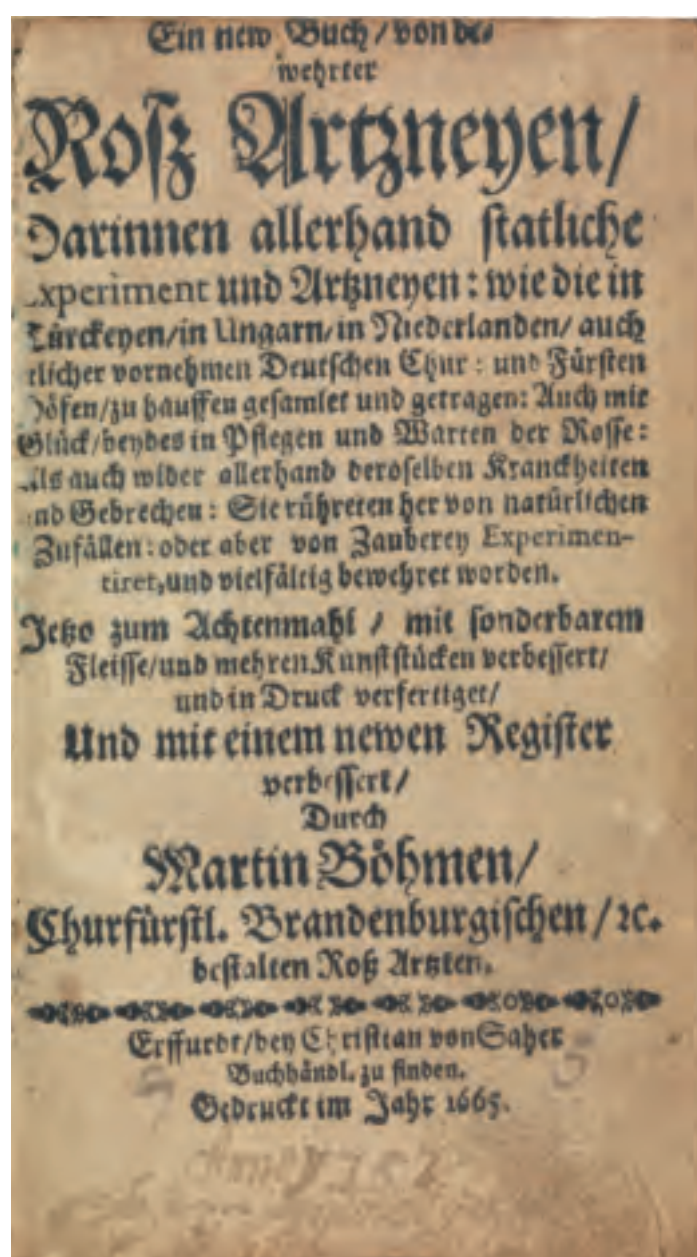 Ein new Buch / von be-
wehrter
Roſz Artzneyen /
Darinnen allerhand ſtatliche
Experiment und Artzneyen : wie die in
Türckeyen/in Ungarn/in Niederlanden/ auch
etlicher vornehmen Deutſchen Chur : und Fürſten
Höfen/zu hauffen geſamlet und getragen: Auch mit
Glück/beydes in Pflegen und Warten der Roſſe:
Als auch wider allerhand deroſelben Kranckheiten
und Gebrechen : Sie rühreten her von natürlichen
Zufällen: oder aber von Zauberey Experimen-
tiret, und vielfältig bewehret worden.
Jetzo zum Achtenmahl / mit ſonderbarem
Fleiſſe/und mehren Kunſtſtücken verbeſſert/
und in Druck verfertiget/
Und mit einem newen Regiſter
verbeſſert/
Durch
Martin Böhmen/
Churfürſtl. Brandenburgiſchen / ꝛc.
beſtalten Roß Artzten.
Erffurdt/bey Chriſtian von Saher
Buchhändl. zu finden.
Gedruckt im Jahr 1665.